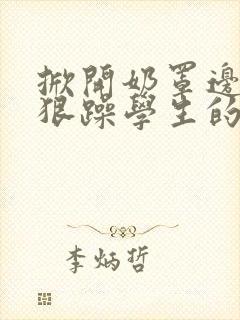 掀開奶罩邊
狠躁學生的
李炳哲